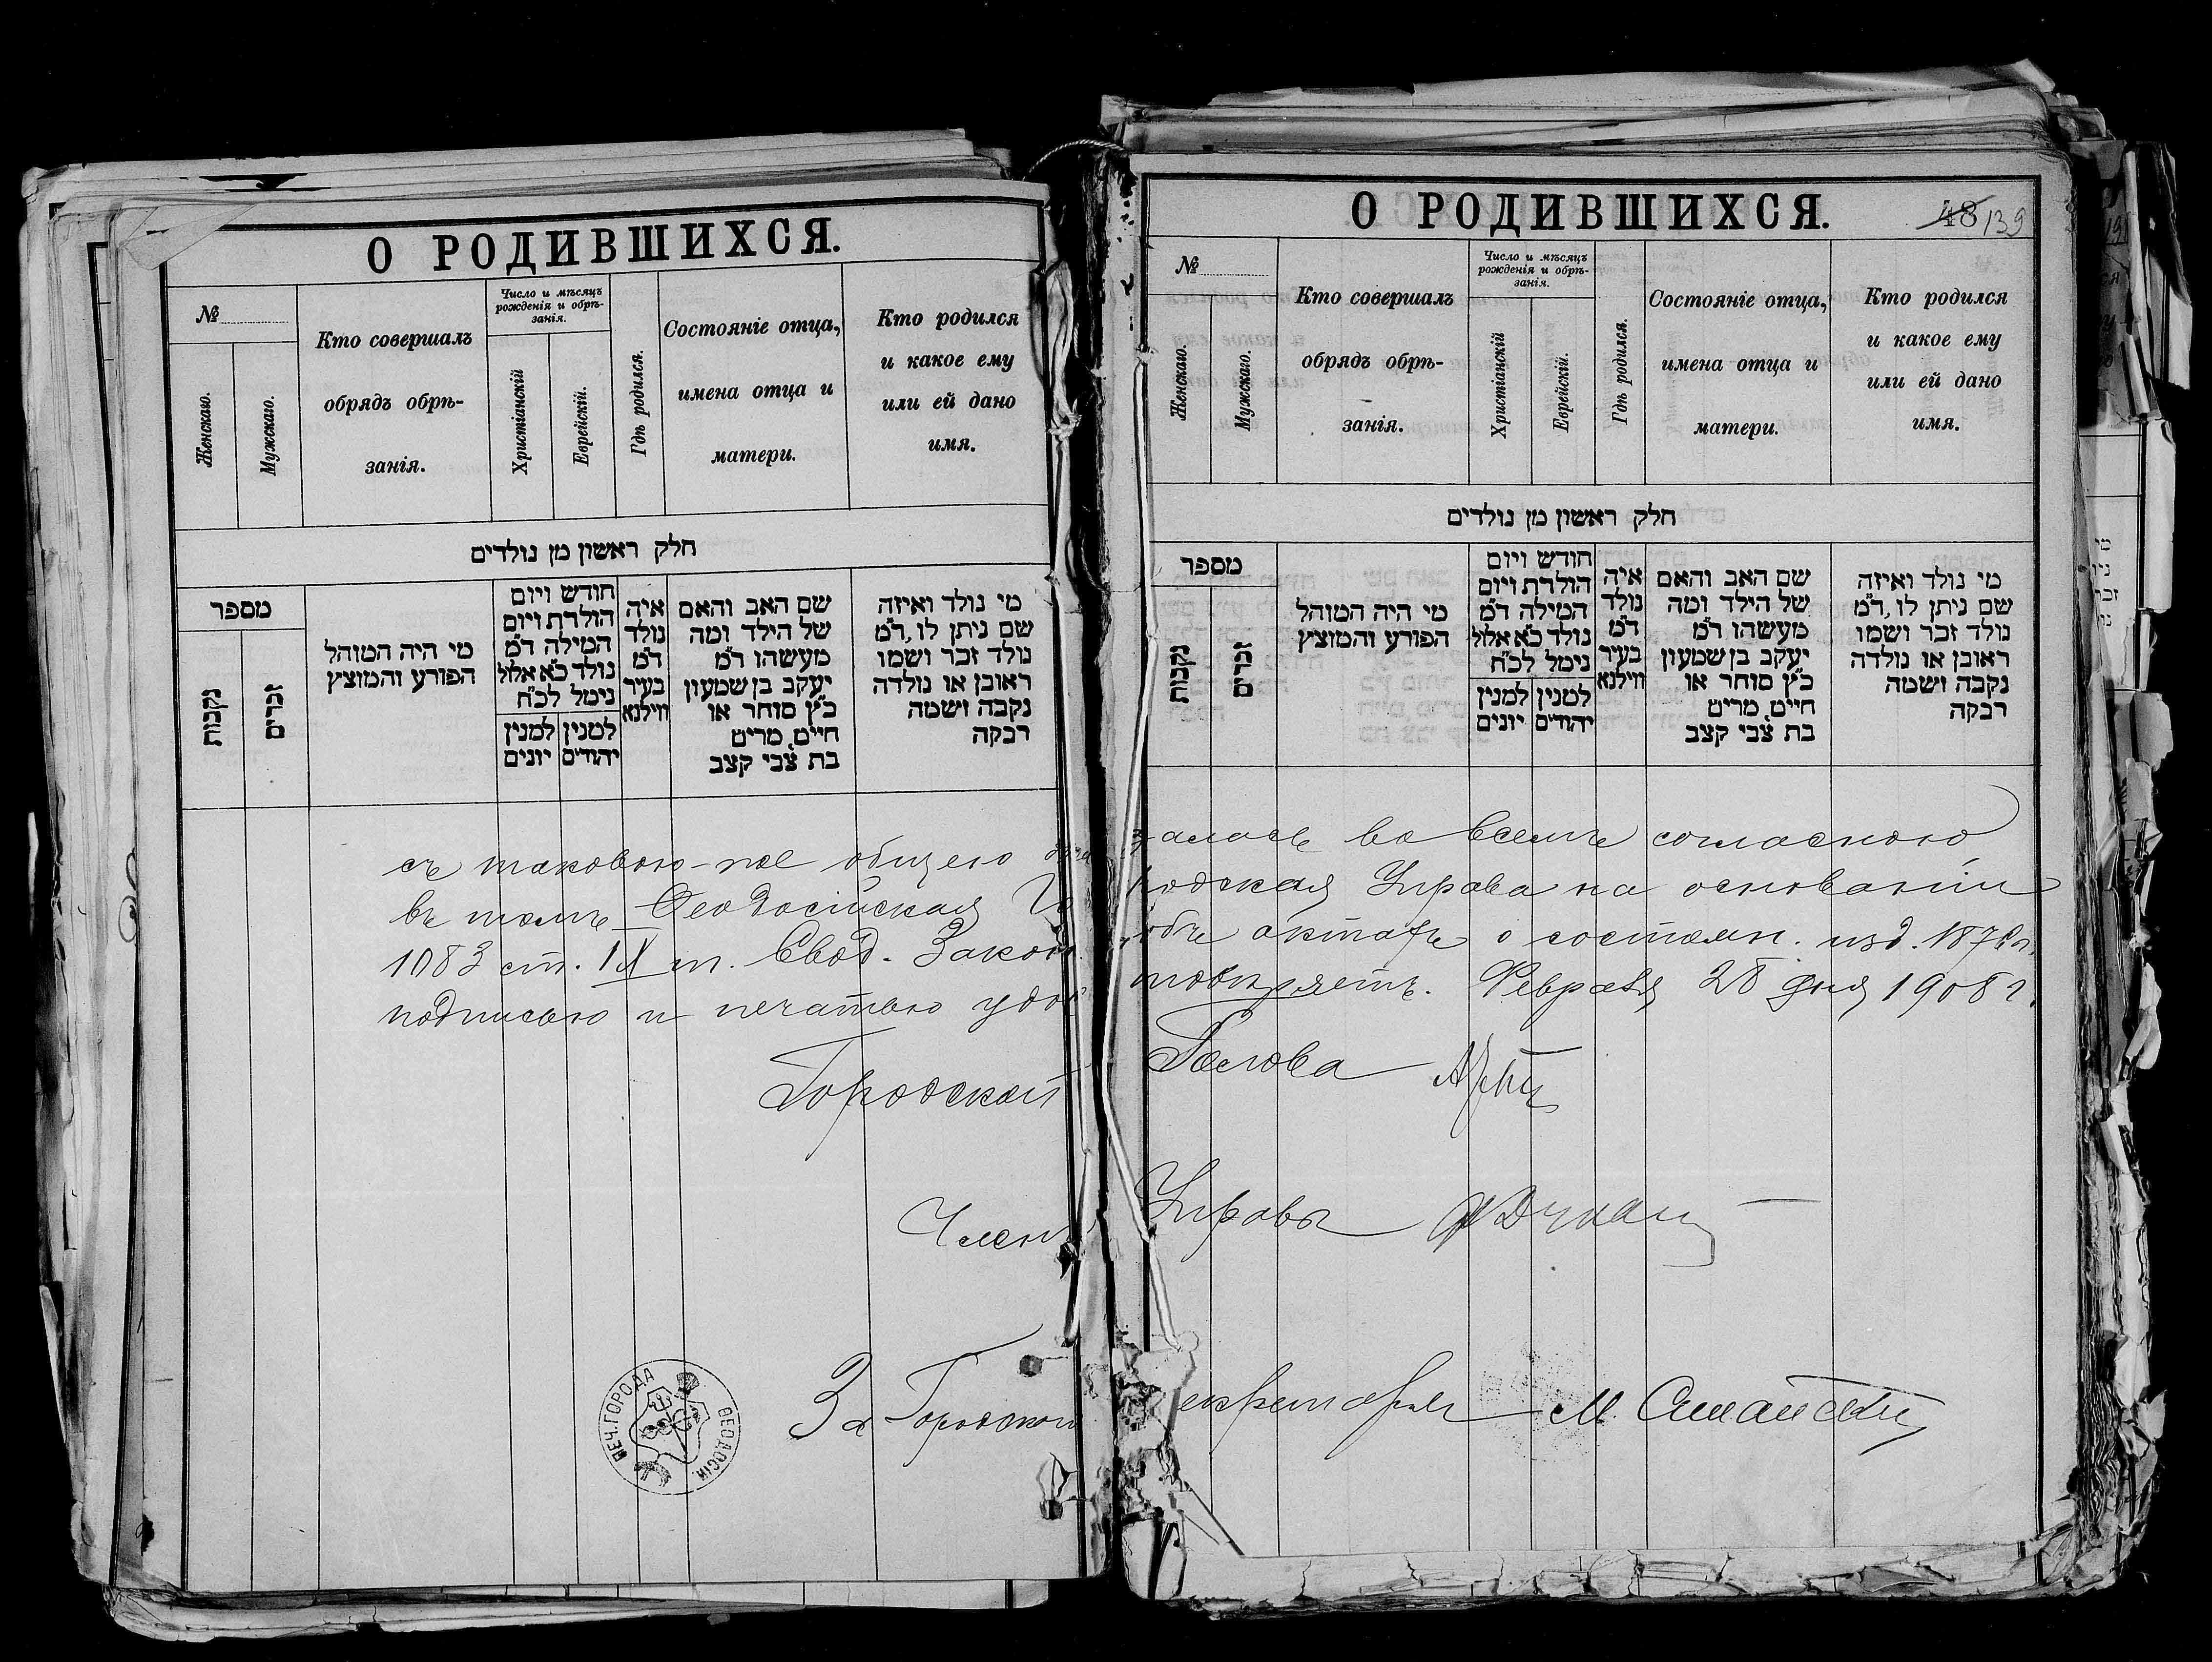 О РОДИВШИХСЯ.
№
Женскаго.
Мужскаго.
Кто совершалъ
обрядъ обрѣ-
занія.
Число и мѣсяцъ
рожденія и обрѣ-
занія.
Христіанскій
Еврейскій.
Гдѣ родился.
Состояніе отца,
имена отца и
матери.
Кто родился
и какое ему
или ей дано
имя.
חלק ראשון מן נולדים
מספר
נקבות
זכרים
מי היה המוהל
הפורע והמוצץ
חודש ויום
הולדת ויום
המילה ד"מ
נולד כ"א אלול
נימל לכ"ח
למנין יונים
למנין יהודים
איה
נולד
ד"מ
בעיר
ווילנא
שם האב והאם
של הילד ומה
מעשהו ד"מ
יעקב בן שמעון
כ"ץ סוחר או
חייט, מרים
בת צבי קצב
מי נולד ואיזה
שם ניתן לו, ד"מ
נולד זכר ושמו
ראובן או נולדה
נקבה ושמה
רבקה
съ таковою-же общею
въ томъ Ѳеодосійская Го
1083 ст. IX т. Свод. Закон
подписью и печатью удос
Городской
Член
За Городского
ПЕЧ. ГОРОДА ѲЕОДОСІИ.
О РОДИВШИХСЯ.
48 139
№
Женскаго.
Мужскаго.
Кто совершалъ
обрядъ обрѣ-
занія.
Число и мѣсяцъ
рожденія и обрѣ-
занія.
Христіанскій
Еврейскій.
Гдѣ родился.
Состояніе отца,
имена отца и
матери.
Кто родился
и какое ему
или ей дано
имя.
חלק ראשון מן נולדים
מספר
נקבות
זכרים
מי היה המוהל
הפורע והמוצץ
חודש ויום
הולדת ויום
המילה ד"מ
נולד כ"א אלול
נימל לכ"ח
למנין יונים
למנין יהודים
איה
נולד
ד"מ
בעיר
ווילנא
שם האב והאם
של הילד ומה
מעשהו ד"מ
יעקב בן שמעון
כ"ץ סוחר או
חייט, מרים
בת צבי קצב
מי נולד ואיזה
שם ניתן לו, ד"מ
נולד זכר ושמו
ראובן או נולדה
נקבה ושמה
רבקה
залось во всемъ согласною
родская Управа на основаніи
объ актахъ о состоян. изд. 1876 г.
товѣряетъ. Февраля 28 дня 1908 г.
Голова
Управы
екретарь М.